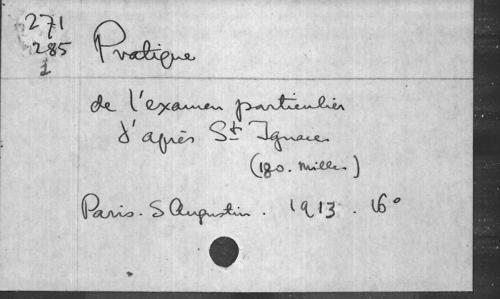 271
285
1
Pratique
de l'examen particulier
d'après St Ignace
(180. mille)
Paris. S Augustin. 1913. 16°